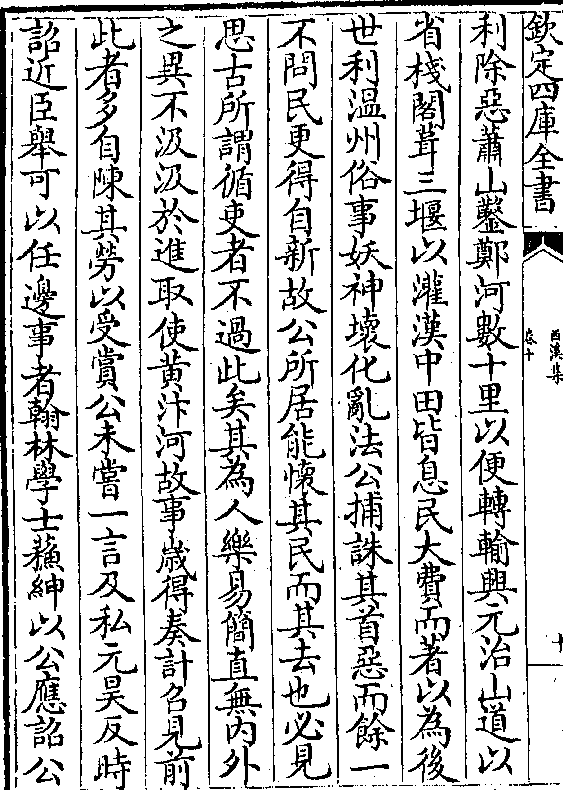 欽定四庫全書
西溪集
卷十
十
利除惡蕭山鑿鄭河數十里以便轉輸興元治山道以
省棧閣葺三堰以灌漢中田皆息民大費而著以為後
世利溫州俗事妖神壞化亂法公捕誅其首惡而餘一
不問民更得自新故公所居能懷其民而其去也必見
思古所謂循吏者不過此矣其為人樂易簡直無內外
之異不汲汲於進取使黃汴河故事歲得奏計召見前
此者多自陳其勞以受賞公未嘗一言及私元昊反時
詔近臣舉可以任邊事者翰林學士蘓紳以公應詔公